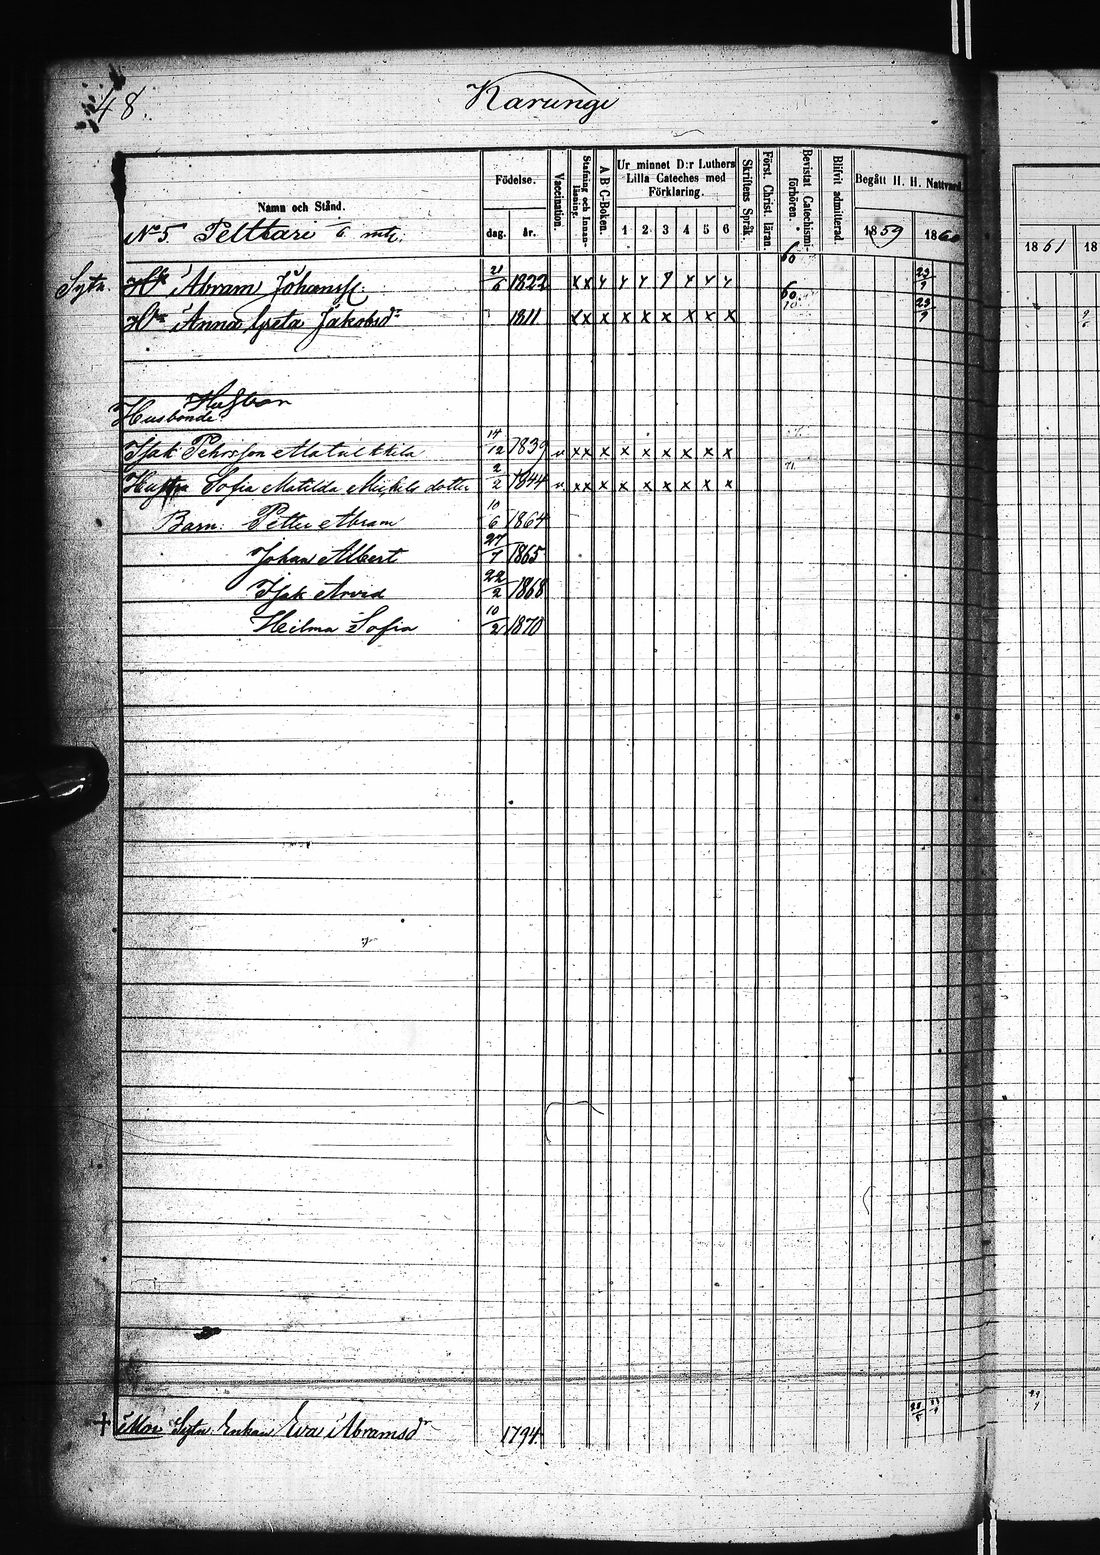 48.
Karungi
Namn och Stånd.
Födelse.
dag.
år.
Vaccination.
Stafning och Innanläsning.
A B C-Boken.
Ur minnet D:r Luthers Lilla Cateches med Förklaring.
1 2 3 4 5 6
Skriftens Språk.
Först. Christ. läran.
Bevistat Catechismiförhören.
Blifvit admitterad.
Begått H. H. Nattvard.
1859
1860
1861
18
No 5. Pelttari
Sytn. Abram Johanss. 21/6 1822 x x y y y y y y y 60 23/9
Anna Greta Jakobsdr 1811 x x x x x x x x x 60 23/9
Hustron
Husbonde
Isak Pehrsson 14/12 1839 v x x x x x x x x x
Hustru Sofia Matilda Mickels dotter 2/2 1844 v x x x x x x x x x
Barn: Petter Abram 10/6 1864
Johan Albert 27/7 1865
Isak Arvid 22/2 1868
Hilma Sofia 10/2 1870
+ Mor Sytn. Enkan Eva Abramsdr 1794